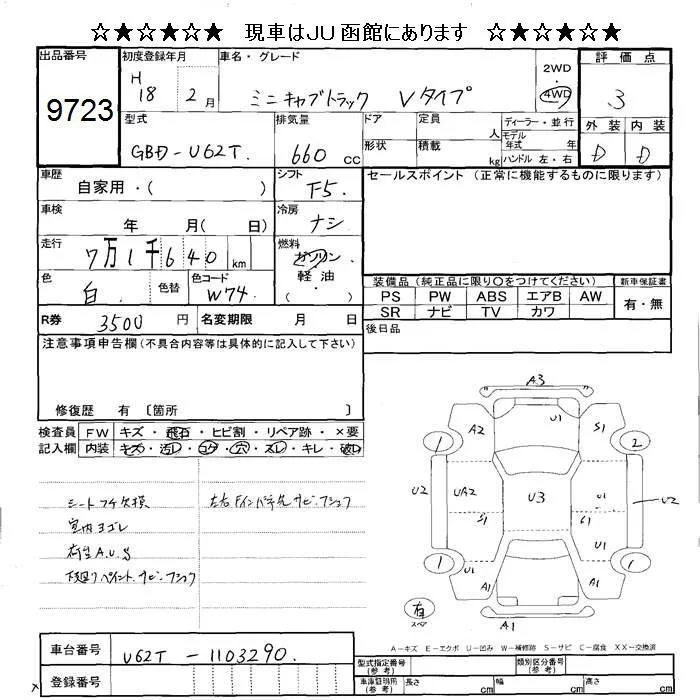 ☆★☆★☆ 現車はJU函館にあります ☆★☆★☆
出品番号 初度登録年月 車名・グレード 2WD 4WD 評価点
9723 H 18 2月 ミニキャブトラック Vタイプ 3
型式 排気量 ドア 定員 人 ディーラー・並行 外装 内装
GBD-U62T. 660 cc 形状 積載 kg モデル年式 年 ハンドル 左・右 D D
車歴 自家用・( ) シフト F5. セールスポイント(正常に機能するものに限ります)
車検 年 月( 日) 冷房 ナシ
走行 7万1千640 km 燃料 ガソリン 軽油 ・( )
色 白 色替 色コード W74. 装備品(純正品に限り○をつけてください) 新車保証書
PS PW ABS エアB AW 有・無
SR ナビ TV カワ
R券 3500円 名変期限 月 日 後日品
注意事項申告欄(不具合内容等は具体的に記入して下さい)
修復歴 有 〔箇所 〕
検査員 FW キズ・飛石・ヒビ割・リペア跡・×要
記入欄 内装 キズ・汚レ・コゲ・穴・スレ・キレ・破レ
シートコゲ欠損
室内ヨゴレ
下廻りペイント.サビ.フショク
A3
A2 U1 S1
1 2
U2 UA2 U3 U1 U2
S1 S1
U1
1 A1 A1 1
有 スペア A1
A-キズ E-エクボ U-凹み W-補修跡 S-サビ C-腐食 XX-交換済
車台番号 U62T-1103290.
登録番号
型式指定番号(参考) 類別区分番号(参考)
車庫証明用(参考) 長さ cm 幅 cm 高さ cm